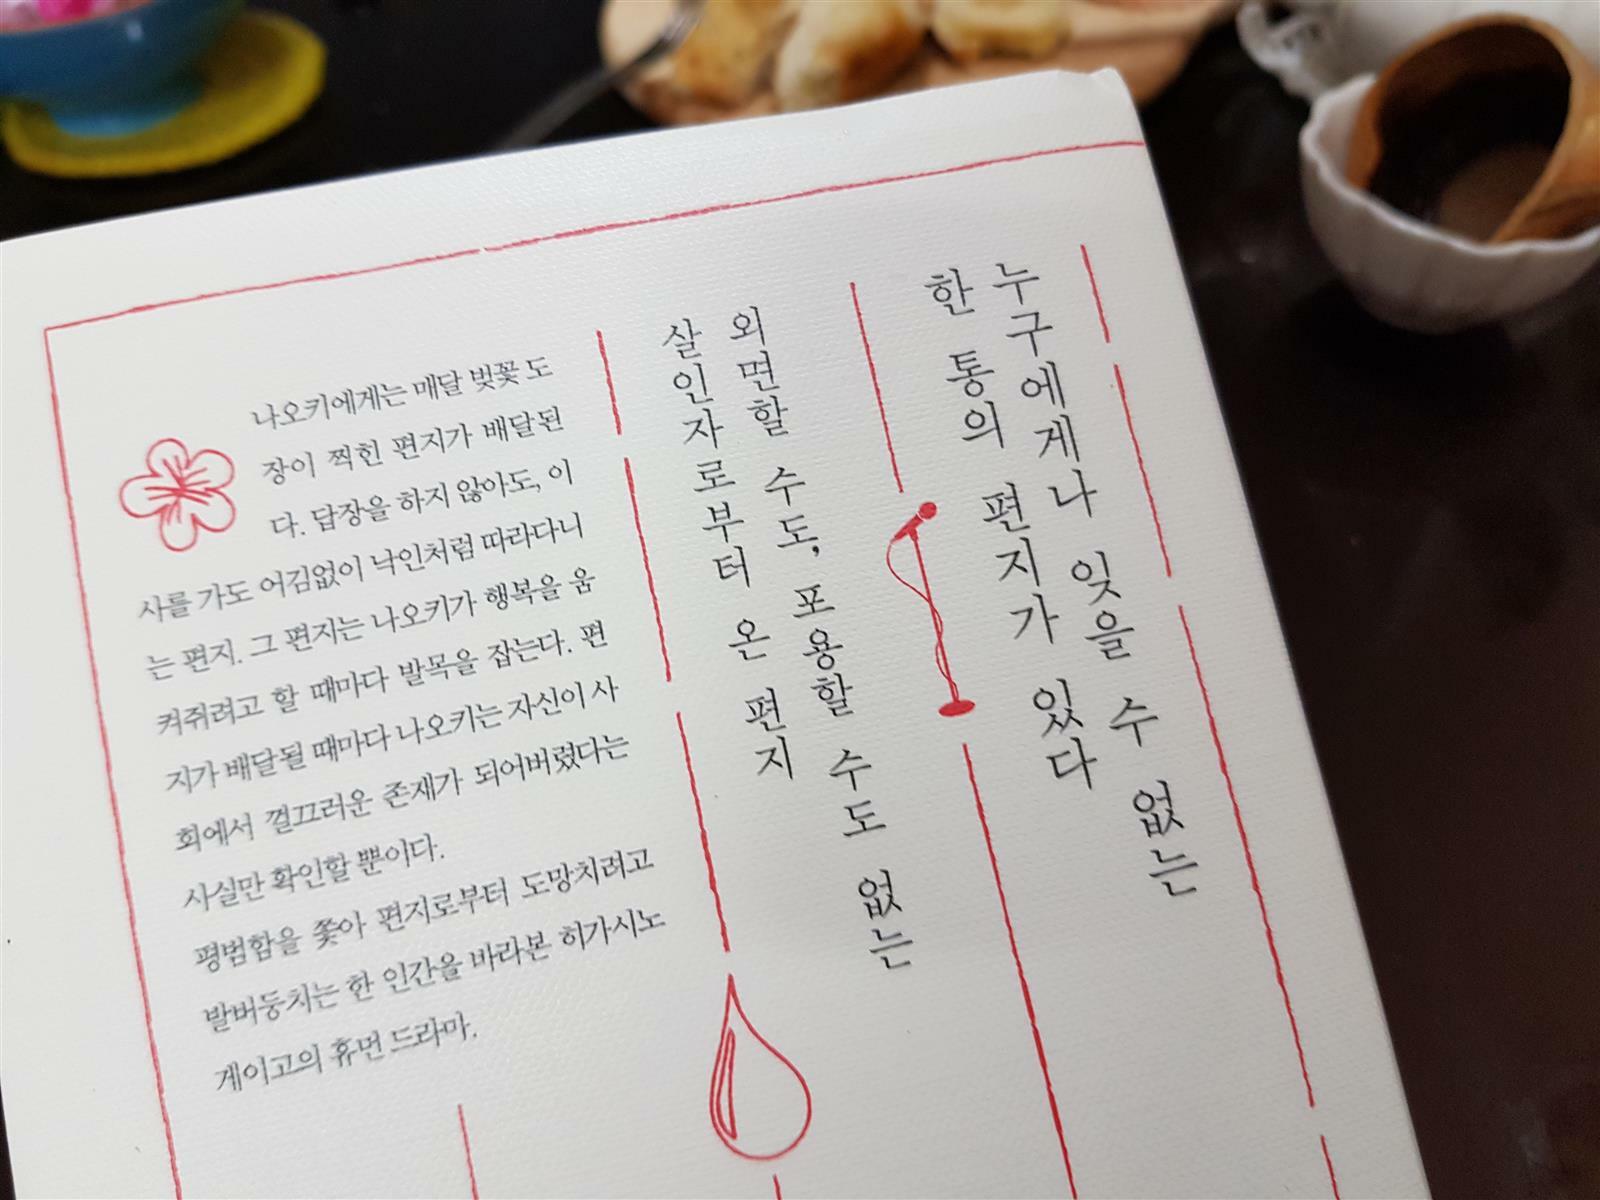 누구에게나 잊을 수 없는
한 통의 편지가 있다
외면할 수도, 포용할 수도 없는
살인자로부터 온 편지
나오키에게는 매달 벚꽃 도
장이 찍힌 편지가 배달된
다. 답장을 하지 않아도, 이
사를 가도 어김없이 낙인처럼 따라다니
는 편지. 그 편지는 나오키가 행복을 움
켜쥐려고 할 때마다 발목을 잡는다. 편
지가 배달될 때마다 나오키는 자신이 사
회에서 껄끄러운 존재가 되어버렸다는
사실만 확인할 뿐이다.
평범함을 쫓아 편지로부터 도망치려고
발버둥치는 한 인간을 바라본 히가시노
게이고의 휴먼 드라마.